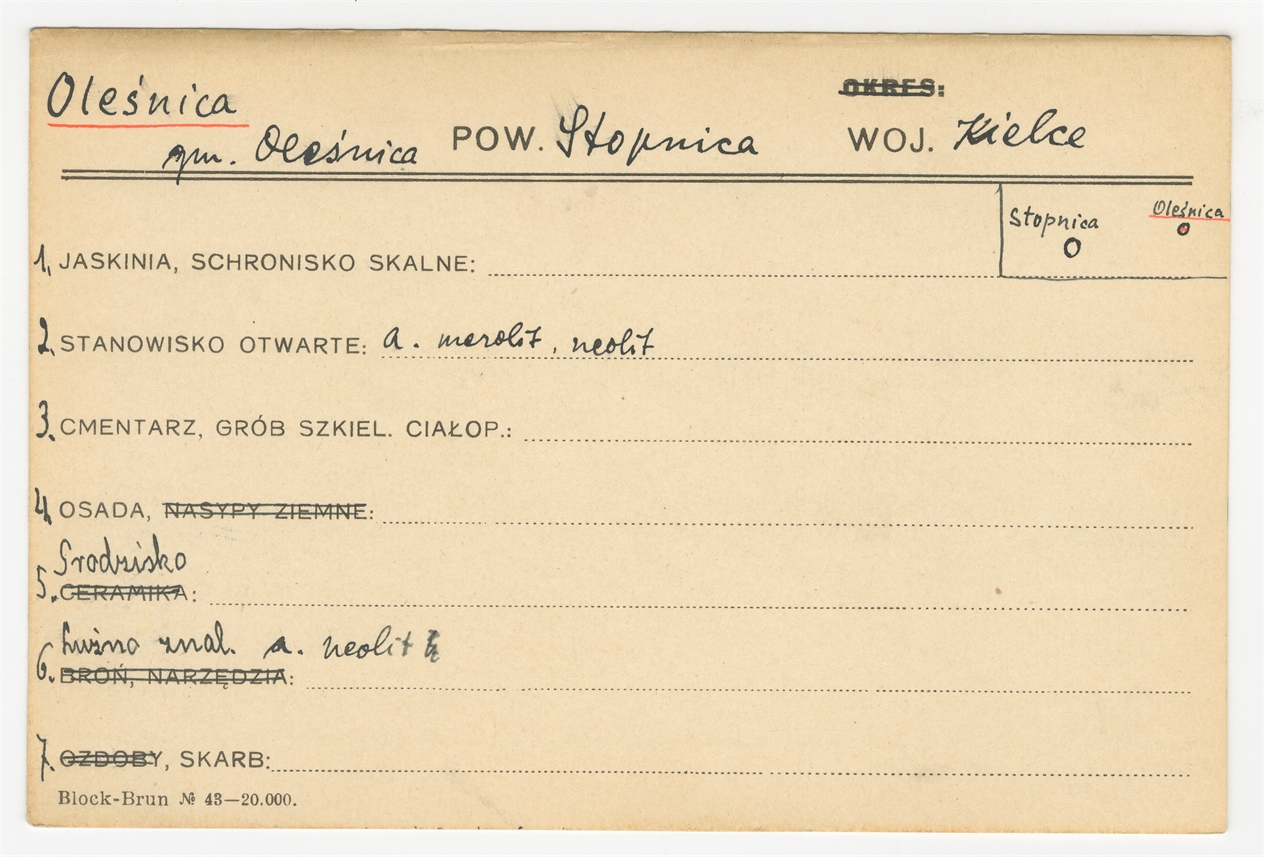 Oleśnica
OKRES:
gm. Oleśnica POW. Stopnica WOJ. Kielce
Stopnica Oleśnica
1. JASKINIA, SCHRONISKO SKALNE:
2. STANOWISKO OTWARTE: a. mezolit, neolit
3. CMENTARZ, GRÓB SZKIEL. CIAŁOP.:
4. OSADA, NASYPY ZIEMNE:
Grodzisko
5. CERAMIKA:
Luźno znal. a. neolit
6. BROŃ, NARZĘDZIA:
7. OZDOBY, SKARB:
Block-Brun № 43—20.000.